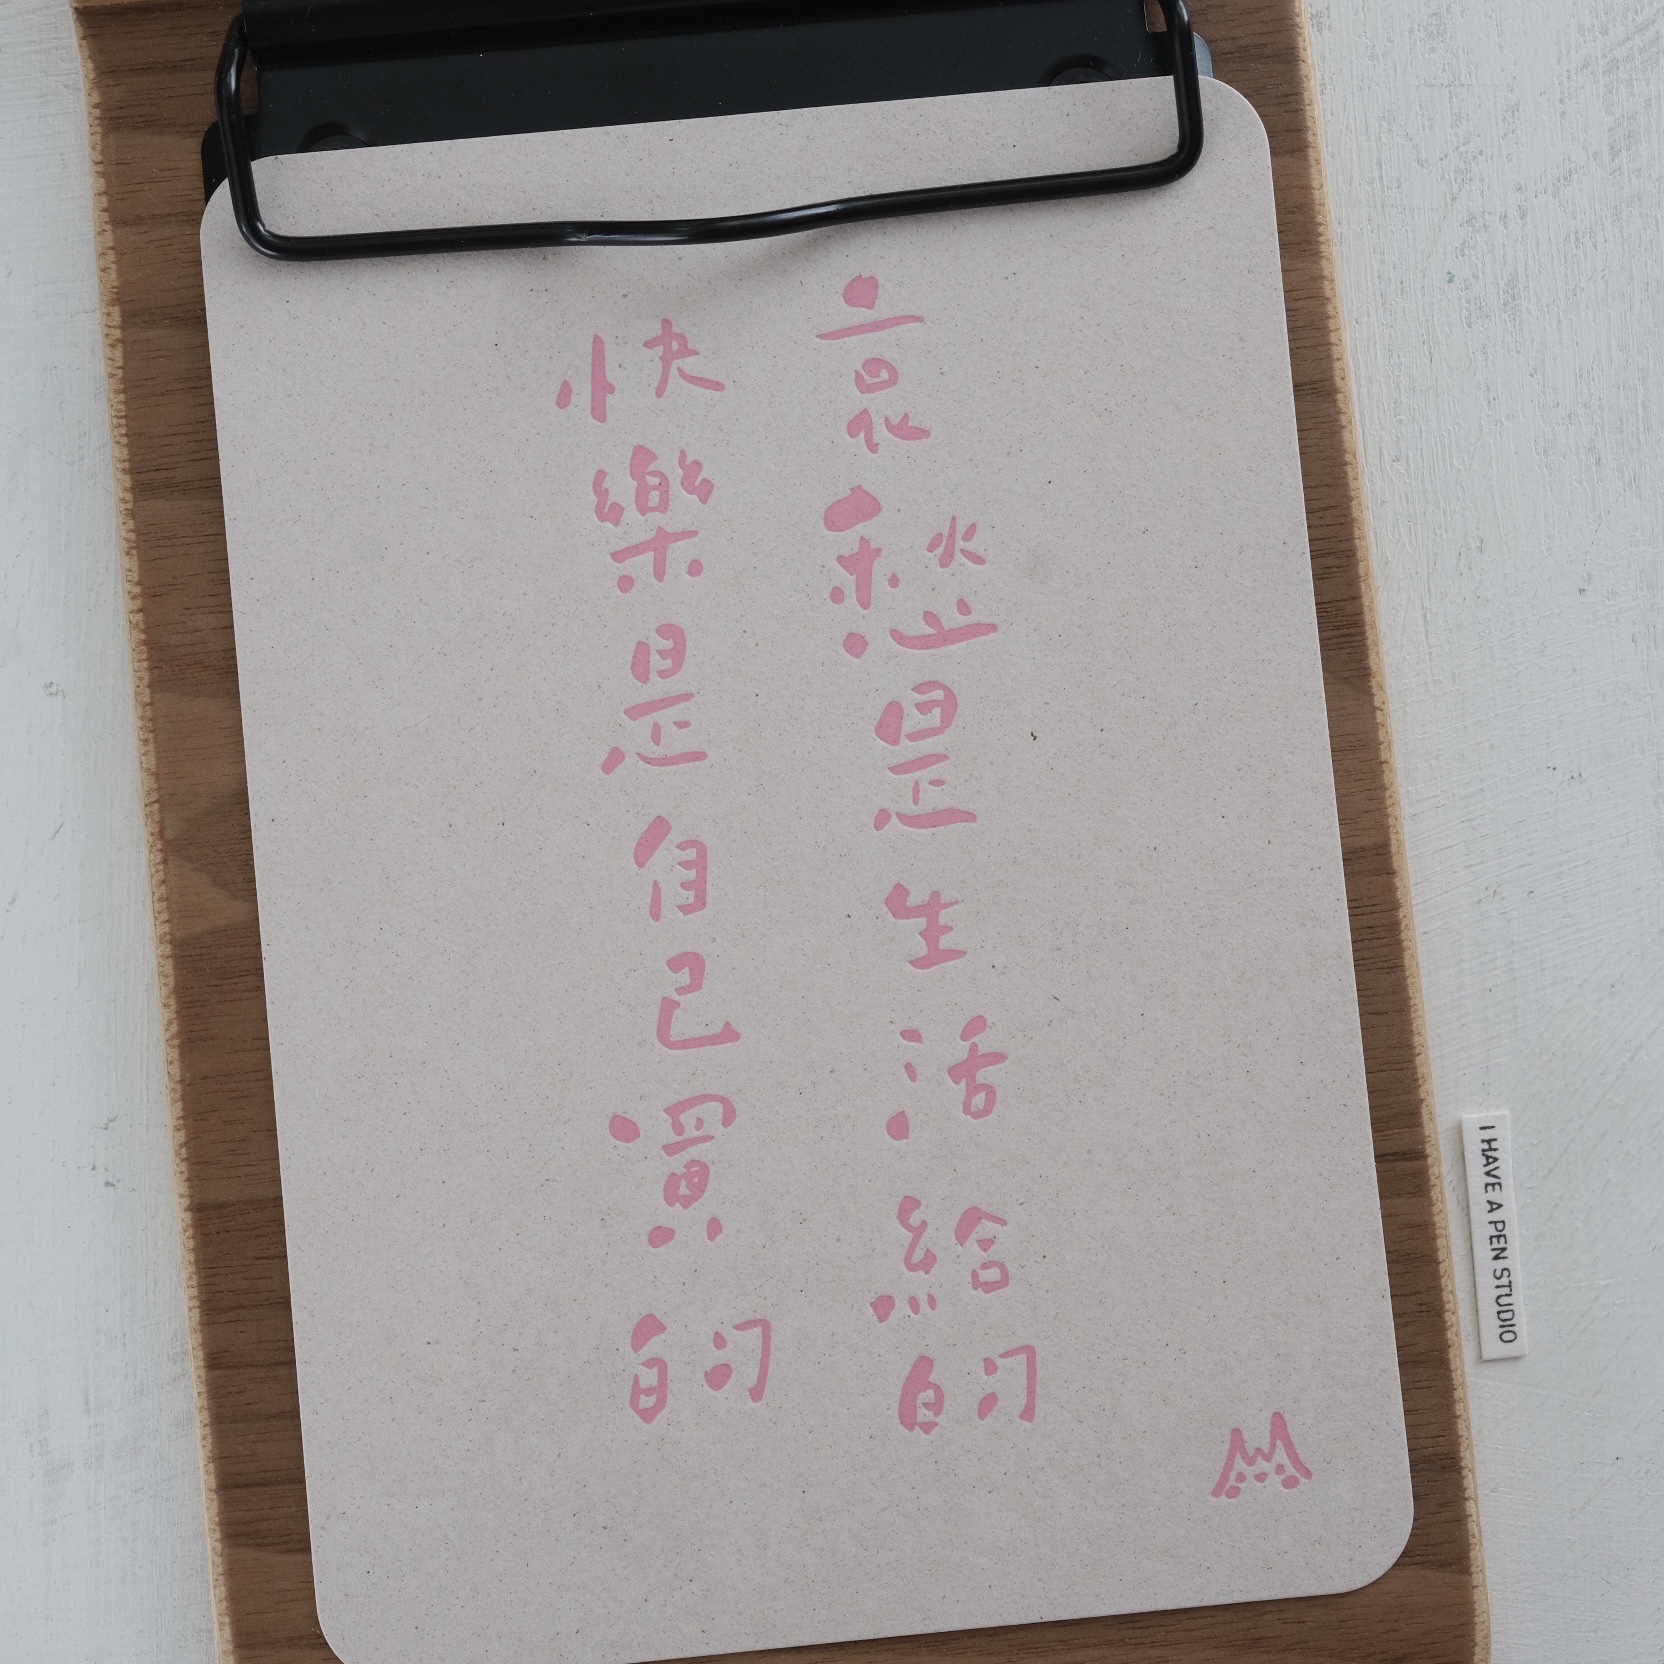 哀愁是生活給的
快樂是自己買的
I HAVE A PEN STUDIO